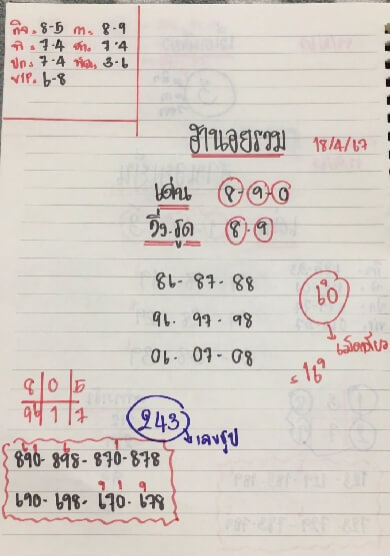 กิจ = 8-5 ก = 8-9
7-4 7-4
ปก = 7-4 พัฒ. 3-6
VIP. 6-8
ฮานอยรวม
18/4/67
เด่น 8-9-0
วิ่ง-รูด 8-9
86-87-88
60
96-97-98
เม็ดเดียว
06-07-08
= 16
8 0 5
96 1 7
243
เลขรูป
890-898-870-878
690-698-670-678